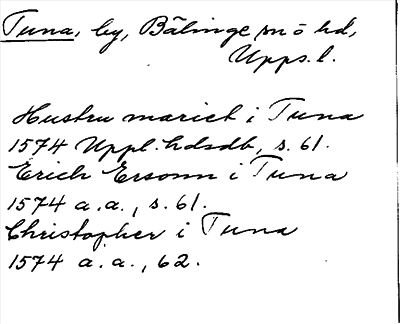 Tuna, by, Bälinge sn ö hd,
Upps. l.
Hustru mariet i Tuna
1574 Uppl. hdsdb, s. 61.
Erich Ersonn i Tuna
1574 a. a., s. 61.
Christopher i Tuna
1574 a. a., 62.